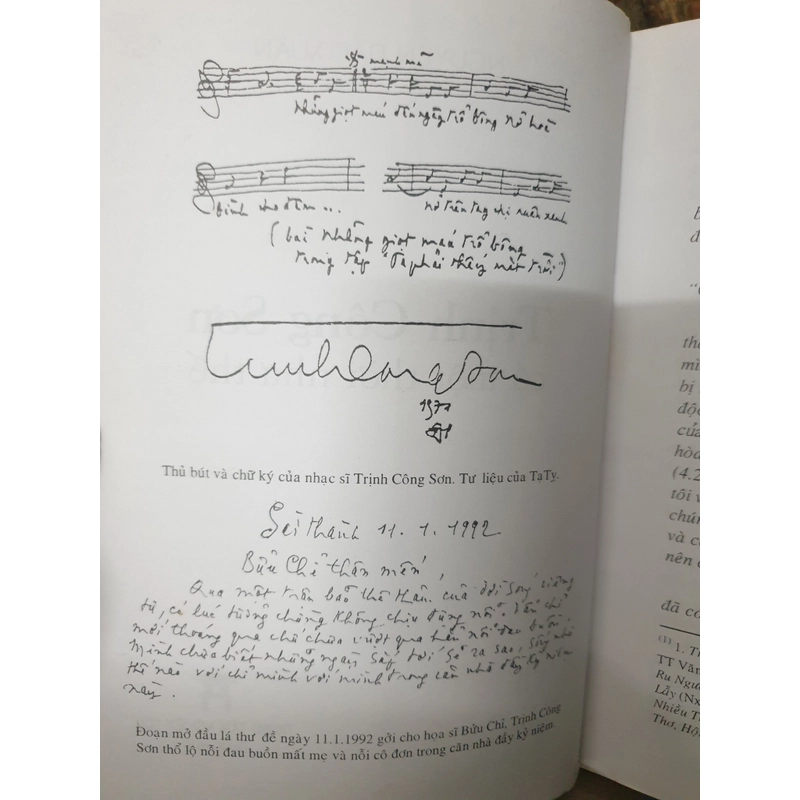 mạnh mẽ
Những giọt máu đã ngày trổ bông nở hoà
bình cho đêm ...
nở trên tay chị xuân xanh
(bài Những giọt máu trổ bông
trong tập "Ta phải thấy mặt trời")
TrinhCongSon
197
Thủ bút và chữ ký của nhạc sĩ Trịnh Công Sơn. Tư liệu của TạTỵ.
Sài thành 11.1.1992
Bửu Chỉ thân mến,
Qua một trận bão thê thảm của đời sống riêng
tư, có lúc tưởng chừng không chịu đựng nổi. Vẫn chỉ
mới thoáng qua chứ chưa vượt qua hẳn nỗi đau buồn,
Mình chưa biết những ngày sắp tới sẽ ra sao, sống như
thế nào với chỉ mình với mình trong căn nhà đầy kỷ niệm
này.
Đoạn mở đầu lá thư đề ngày 11.1.1992 gởi cho họa sĩ Bửu Chỉ, Trịnh Công
Sơn thổ lộ nỗi đau buồn mất mẹ và nỗi cô đơn trong căn nhà đầy kỷ niệm.
mì
bị
độc
của
hòa
(4.2
tôi v
chún
và c
nên
đã có
(1) 1. T
TT Văn
Ru Ngu
Lẫy (Nx
Nhiều T
Thơ, Hộ